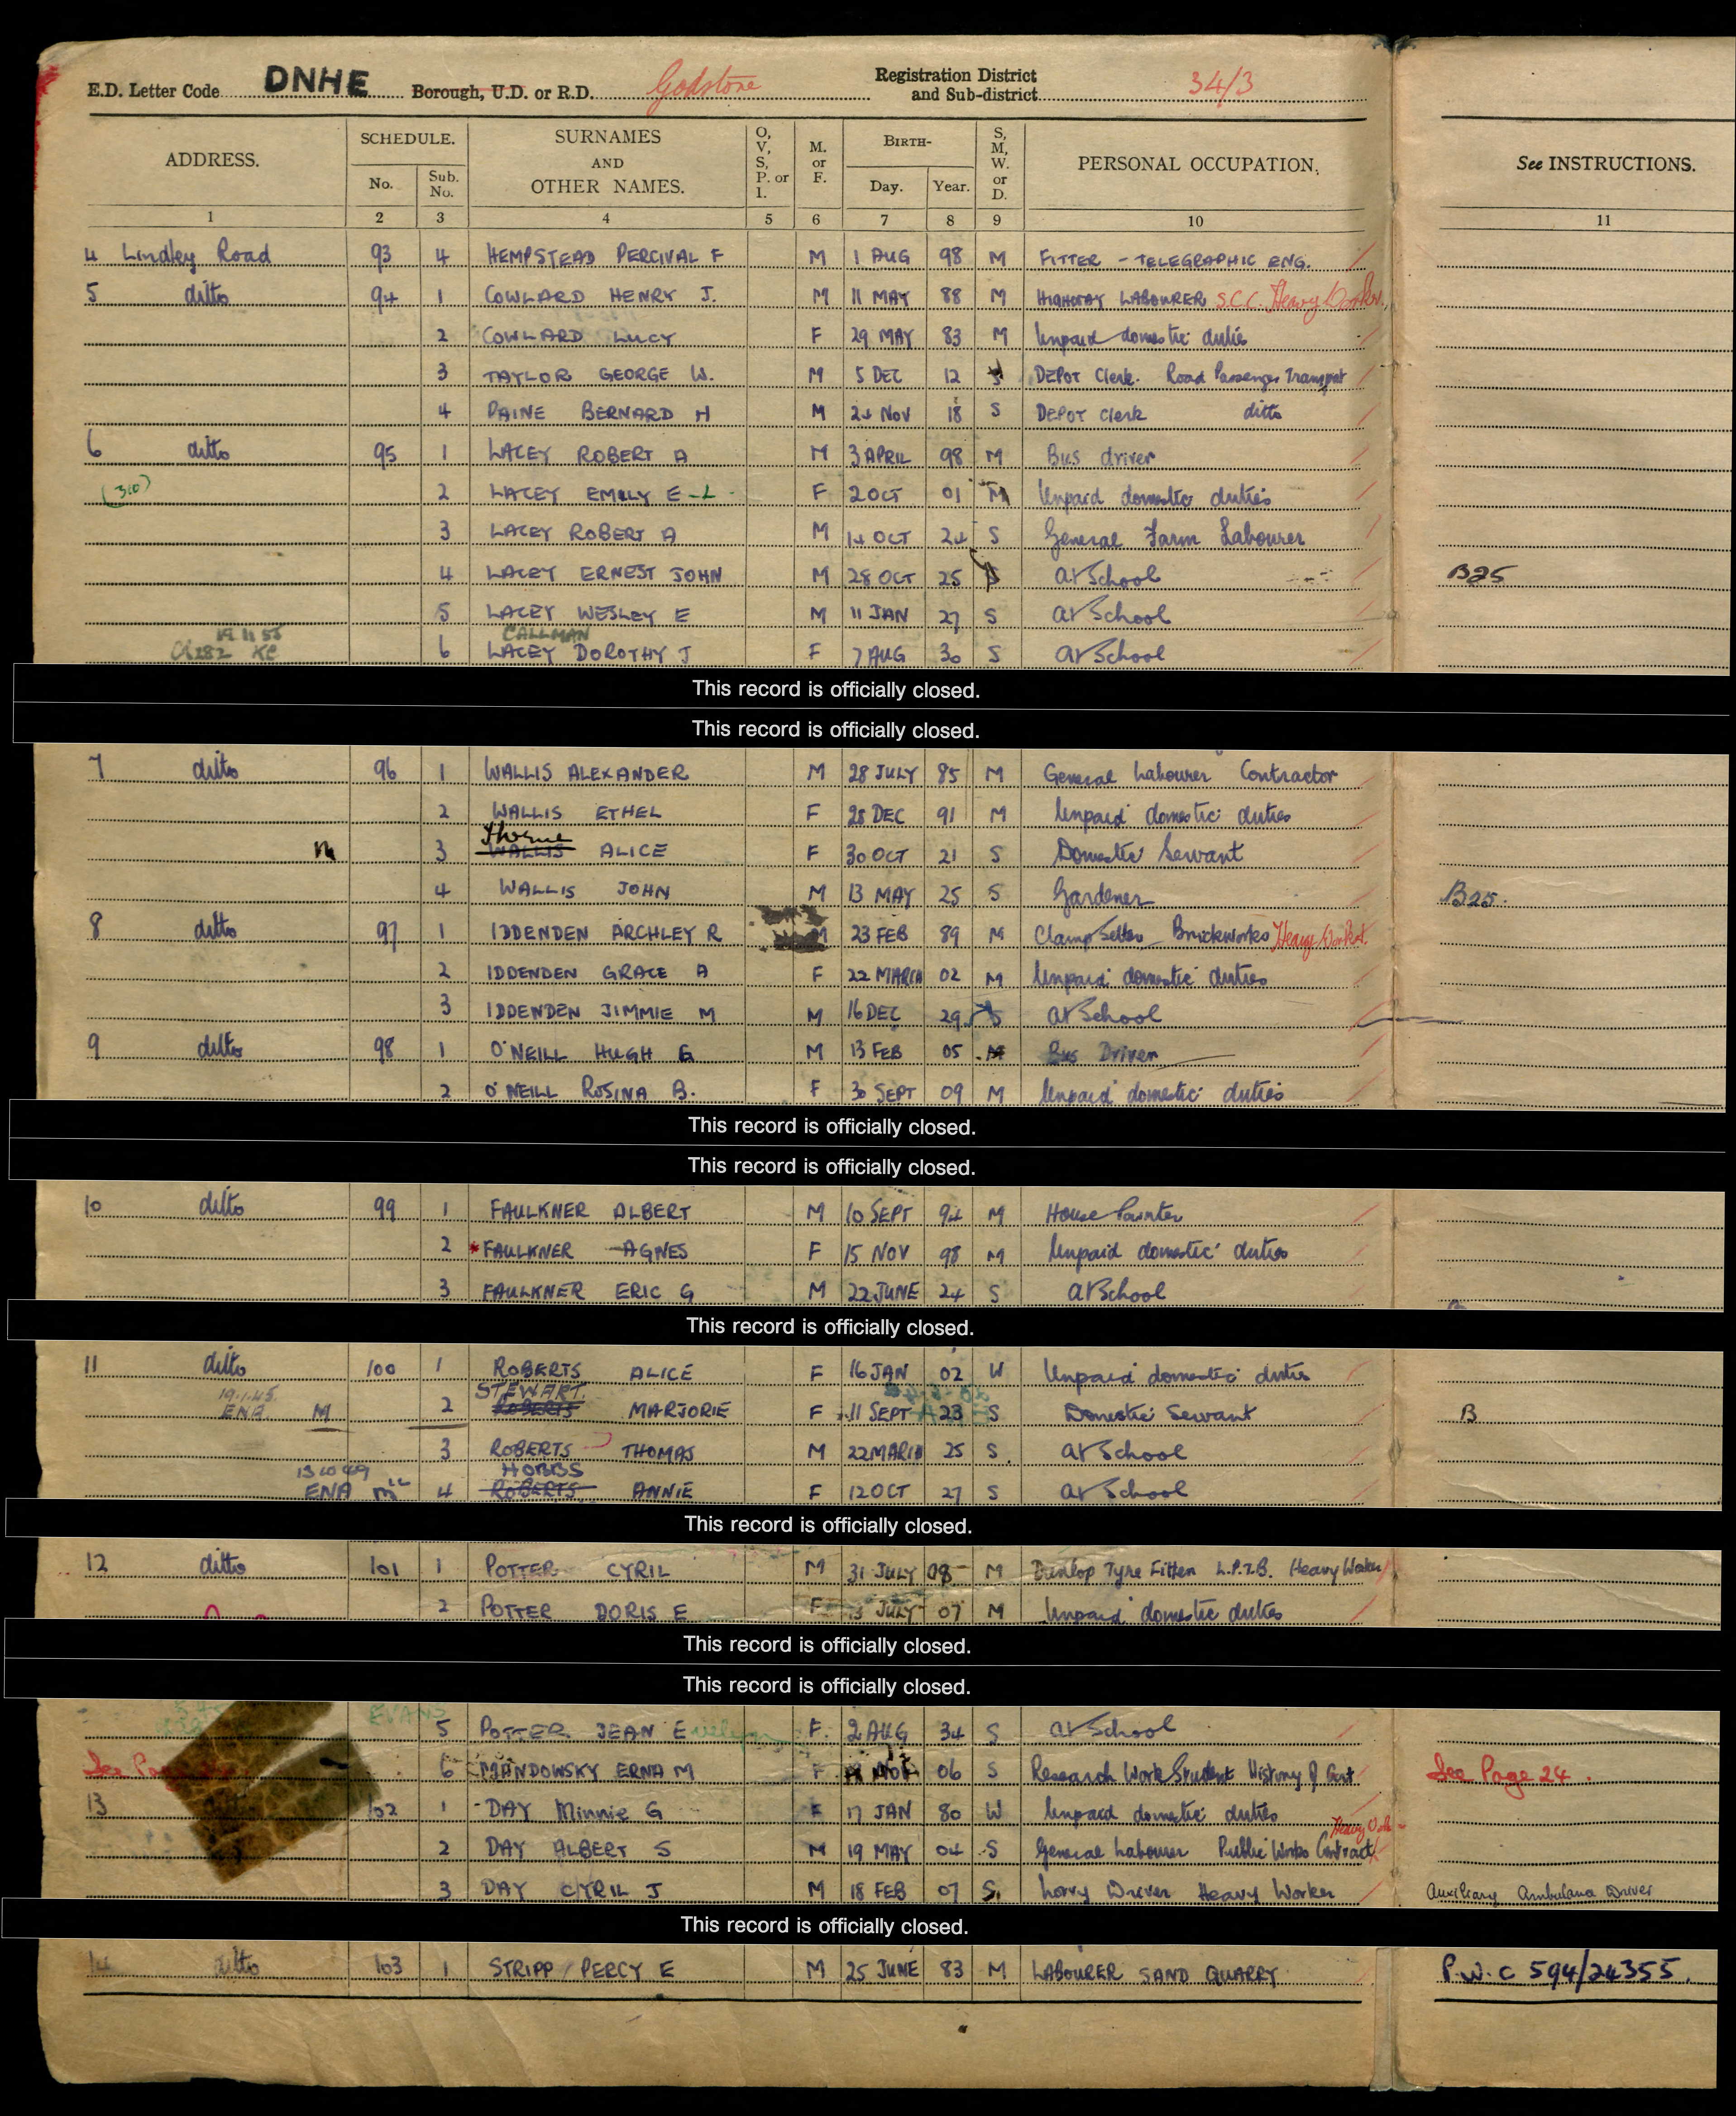 E.D. Letter Code DNHE Borough, U.D. or R.D. Godstone Registration District and Sub-district 34/3
ADDRESS. SCHEDULE. No. Sub. No. SURNAMES AND OTHER NAMES. O, V, S, P. or I. M. or F. BIRTH- Day. Year. S, M, W. or D. PERSONAL OCCUPATION. See INSTRUCTIONS.
1 2 3 4 5 6 7 8 9 10 11
4 Lindley Road 93 4 HEMPSTEAD PERCIVAL F M 1 AUG 98 M FITTER - TELEGRAPHIC ENG.
5 ditto 94 1 COWLARD HENRY J. M 11 MAY 88 M HIGHWAY LABOURER S.C.C. Heavy Worker
2 COWLARD LUCY F 29 MAY 83 M Unpaid domestic duties
3 TAYLOR GEORGE W. M 5 DEC 12 DEPOT Clerk. Road Passenger Transport
4 PAINE BERNARD H M 24 NOV 18 S DEPOT Clerk ditto
6 ditto 95 1 LACEY ROBERT A M 3 APRIL 98 M Bus driver
(310) 2 LACEY EMILY E - L F 2 OCT 01 M Unpaid domestic duties
3 LACEY ROBERT A M 14 OCT 24 S General Farm Labourer
4 LACEY ERNEST JOHN M 28 OCT 25 S at School B25
5 LACEY WESLEY E M 11 JAN 27 S at School
19 11 55 CALLMAN
CR282 KC 6 LACEY DOROTHY J F 7 AUG 30 S at School
This record is officially closed.
This record is officially closed.
7 ditto 96 1 WALLIS ALEXANDER M 28 JULY 85 M General Labourer Contractor
2 WALLIS ETHEL F 28 DEC 91 M Unpaid domestic duties
Thorne
m 3 WALLIS ALICE F 30 OCT 21 S Domestic Servant
4 WALLIS JOHN M 13 MAY 25 S Gardener B25.
8 ditto 97 1 IDDENDEN ARCHLEY R M 23 FEB 89 M Clamp Setter Brickworks Heavy Worker
2 IDDENDEN GRACE A F 22 MARCH 02 M Unpaid domestic duties
3 IDDENDEN JIMMIE M M 16 DEC 29 S at School
9 ditto 98 1 O'NEILL HUGH G M 13 FEB 05 M Bus Driver
2 O'NEILL ROSINA B. F 30 SEPT 09 M Unpaid domestic duties
This record is officially closed.
This record is officially closed.
10 ditto 99 1 FAULKNER ALBERT M 10 SEPT 94 M House Painter
2 FAULKNER AGNES F 15 NOV 98 M Unpaid domestic duties
3 FAULKNER ERIC G M 22 JUNE 24 S at School
This record is officially closed.
11 ditto 100 1 ROBERTS ALICE F 16 JAN 02 W Unpaid domestic duties
19.1.45. STEWART
ENA M 2 ROBERTS MARJORIE F 11 SEPT 23 S Domestic Servant B
3 ROBERTS THOMAS M 22 MARCH 25 S at School
13 10 49 HOBBS
ENA 4 ROBERTS ANNIE F 12 OCT 27 S at School
This record is officially closed.
12 ditto 101 1 POTTER CYRIL M 31 JULY 08 M Dunlop Tyre Fitter L.P.T.B. Heavy Worker
2 POTTER DORIS E F JULY 07 M Unpaid domestic duties
This record is officially closed.
This record is officially closed.
EVANS
5 POTTER JEAN Evelyn F 2 AUG 34 S at School
See 6 MANDOWSKY ERNA M F 06 S Research Work Student History of Art See Page 24.
13 102 1 DAY Minnie G F 17 JAN 80 W Unpaid domestic duties
2 DAY ALBERT S M 19 MAY 04 S General Labourer Public Works Contract Heavy
3 DAY CYRIL J M 18 FEB 07 S. Lorry Driver Heavy Worker Auxiliary Ambulance Driver
This record is officially closed.
14 ditto 103 1 STRIPP PERCY E M 25 JUNE 83 M LABOURER SAND QUARRY P.W.C 594/24355.